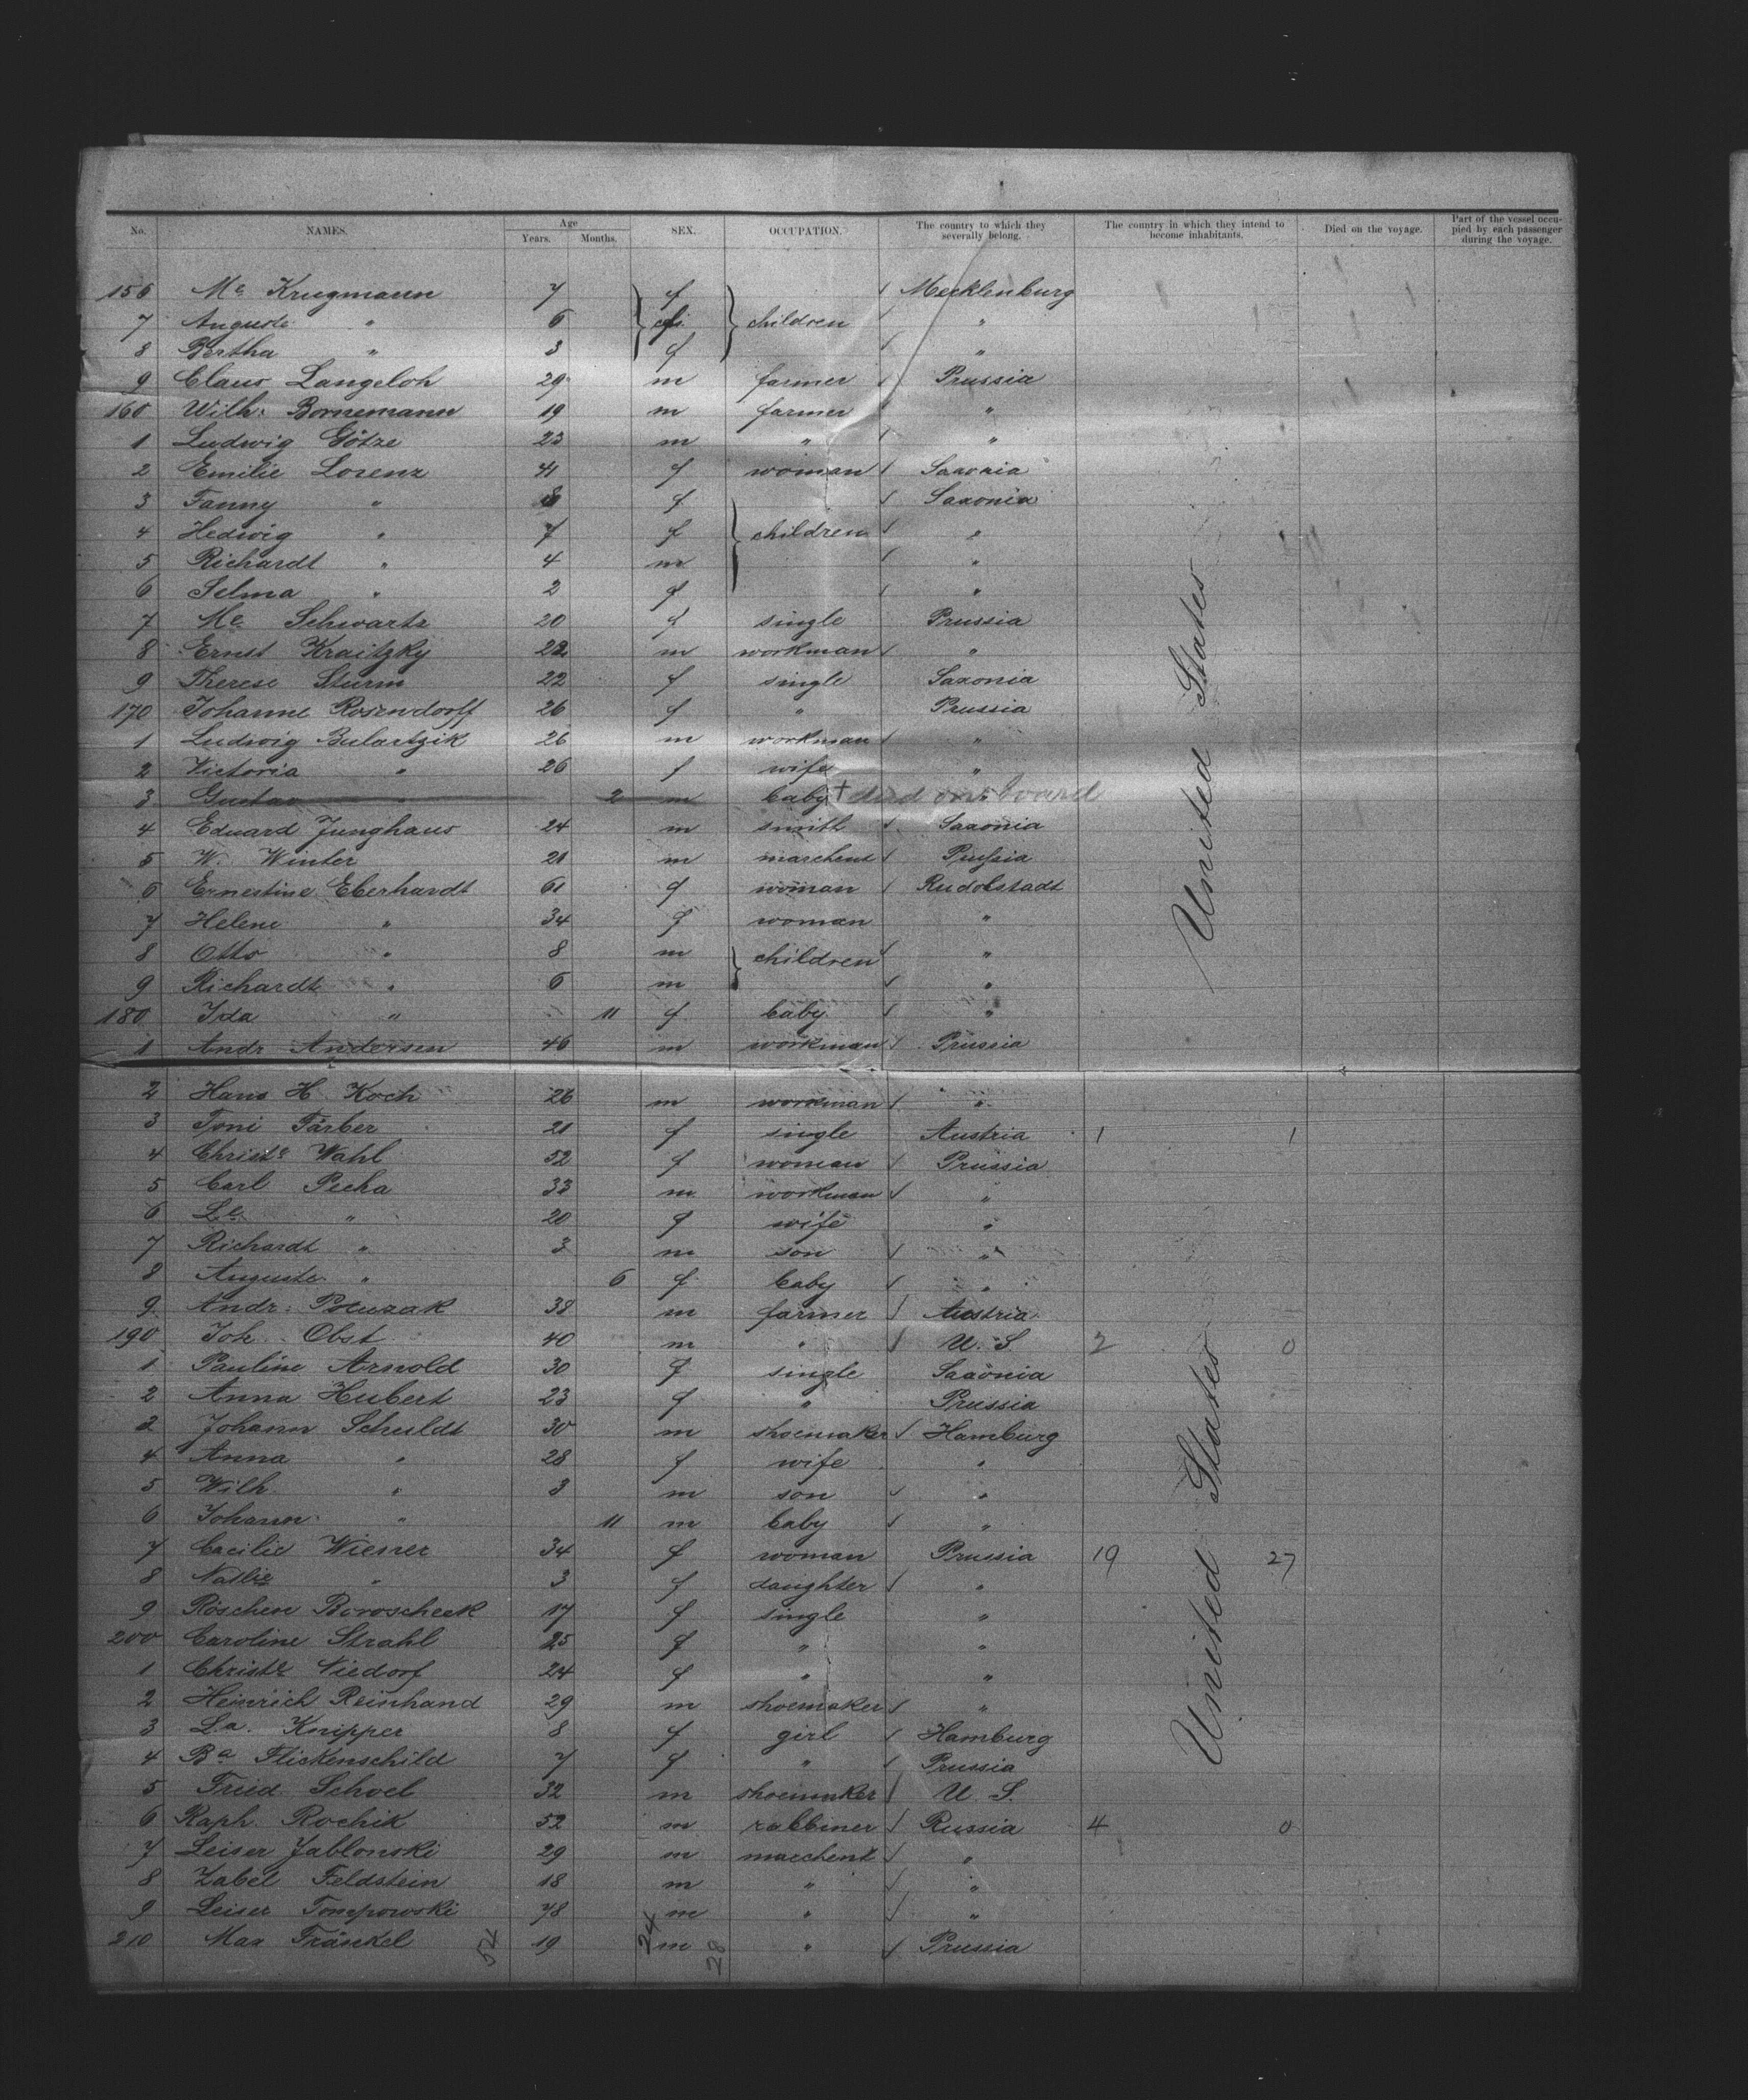 No. NAMES. Age Years. Months. SEX. OCCUPATION. The country to which they severally belong. The country in which they intend to become inhabitants. Died on the voyage. Part of the vessel occupied by each passenger during the voyage.
156 Me Krugmann 7 f Mecklenburg
7 Auguste " 6 f children "
8 Bertha " 3 f "
9 Claus Langeloh 29 m farmer Prussia
160 Wilh. Bornemann 19 m farmer "
1 Ludwig Götze 23 m " "
2 Emilie Lorenz 41 f woman Saxonia
3 Fanny " 8 f Saxonia
4 Hedwig " 7 f children "
5 Richardt " 4 m "
6 Selma " 2 f "
7 Me Schwartz 20 f single Prussia
8 Ernst Kraitzky 22 m workman "
9 Therese Sturm 22 f single Saxonia
170 Johanne Rosendorff 26 f " Prussia
1 Ludwig Bulartzik 26 m workman "
2 Victoria " 26 f wife "
3 Gustav " 2 m baby + died on board
4 Eduard Junghaus 24 m smith Saxonia
5 W. Winter 21 m marchent Prussia
6 Ernestine Eberhardt 61 f woman Rudolstadt
7 Helene " 34 f woman "
8 Otto " 8 m children "
9 Richardt " 6 m "
180 Ida " 11 f baby "
1 Andr Andersen 46 m workman Prussia
United States
2 Hans H. Koch 26 m workman "
3 Toni Färber 21 f single Austria 1 1
4 Christe Wahl 52 f woman Prussia
5 Carl Pecha 33 m workman "
6 Le " 20 f wife "
7 Richardt " 3 m son "
8 Auguste " 6 f baby "
9 Andr. Pocuzak 38 m farmer Austria
190 Joh. Obst 40 m " U. S. 2 0
1 Pauline Arnold 30 f single Saxonia
2 Anna Hubert 23 f " Prussia
3 Johann Schuldt 30 m shoemaker Hamburg
4 Anna " 28 f wife "
5 Wilh. " 3 m son "
6 Johann " 11 m baby "
7 Cacilie Wiesner 34 f woman Prussia 19 27
8 " 3 f daughter "
9 Röschen Boroscheck 17 f single "
200 Caroline Strahl 25 f " "
1 Christe Niedorf 24 f " "
2 Heinrich Reinhand 29 m shoemaker "
3 La. Knipper 8 f girl Hamburg
4 Ba Flickenschild 7 f " Prussia
5 Fried. Schoel 32 m shoemaker U. S.
6 Raph. Rochik 52 m rabbiner Russia 4 0
7 Leiser Jablonski 29 m marchent "
8 Zabel Feldstein 18 m " "
9 Leiser Tompowski 48 m " "
210 Max Fränkel 19 m " Prussia
United States
52 24 28